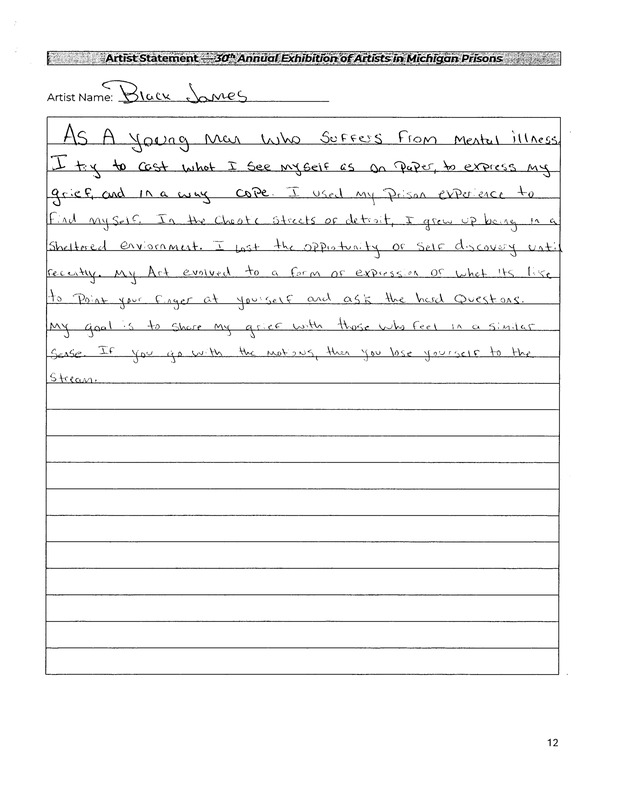 Artist Statement — 30th Annual Exhibition of Artists in Michigan Prisons
Artist Name: Black James
As A young man who suffers from mental illness,
I try to cast what I see myself as on paper, to express my
grief, and in a way cope. I used my prison experience to
find myself. In the chaotc streets of detroit, I grew up being in a
sheltered enviornment. I lost the opportunity of self discovery until
recently. My Art evolved to a form of expression of what its like
to Point your finger at yourself and ask the hard Questions.
My goal is to share my grief with those who feel in a similar
sense. If you go with the motions, then you lose yourself to the
stream.
12